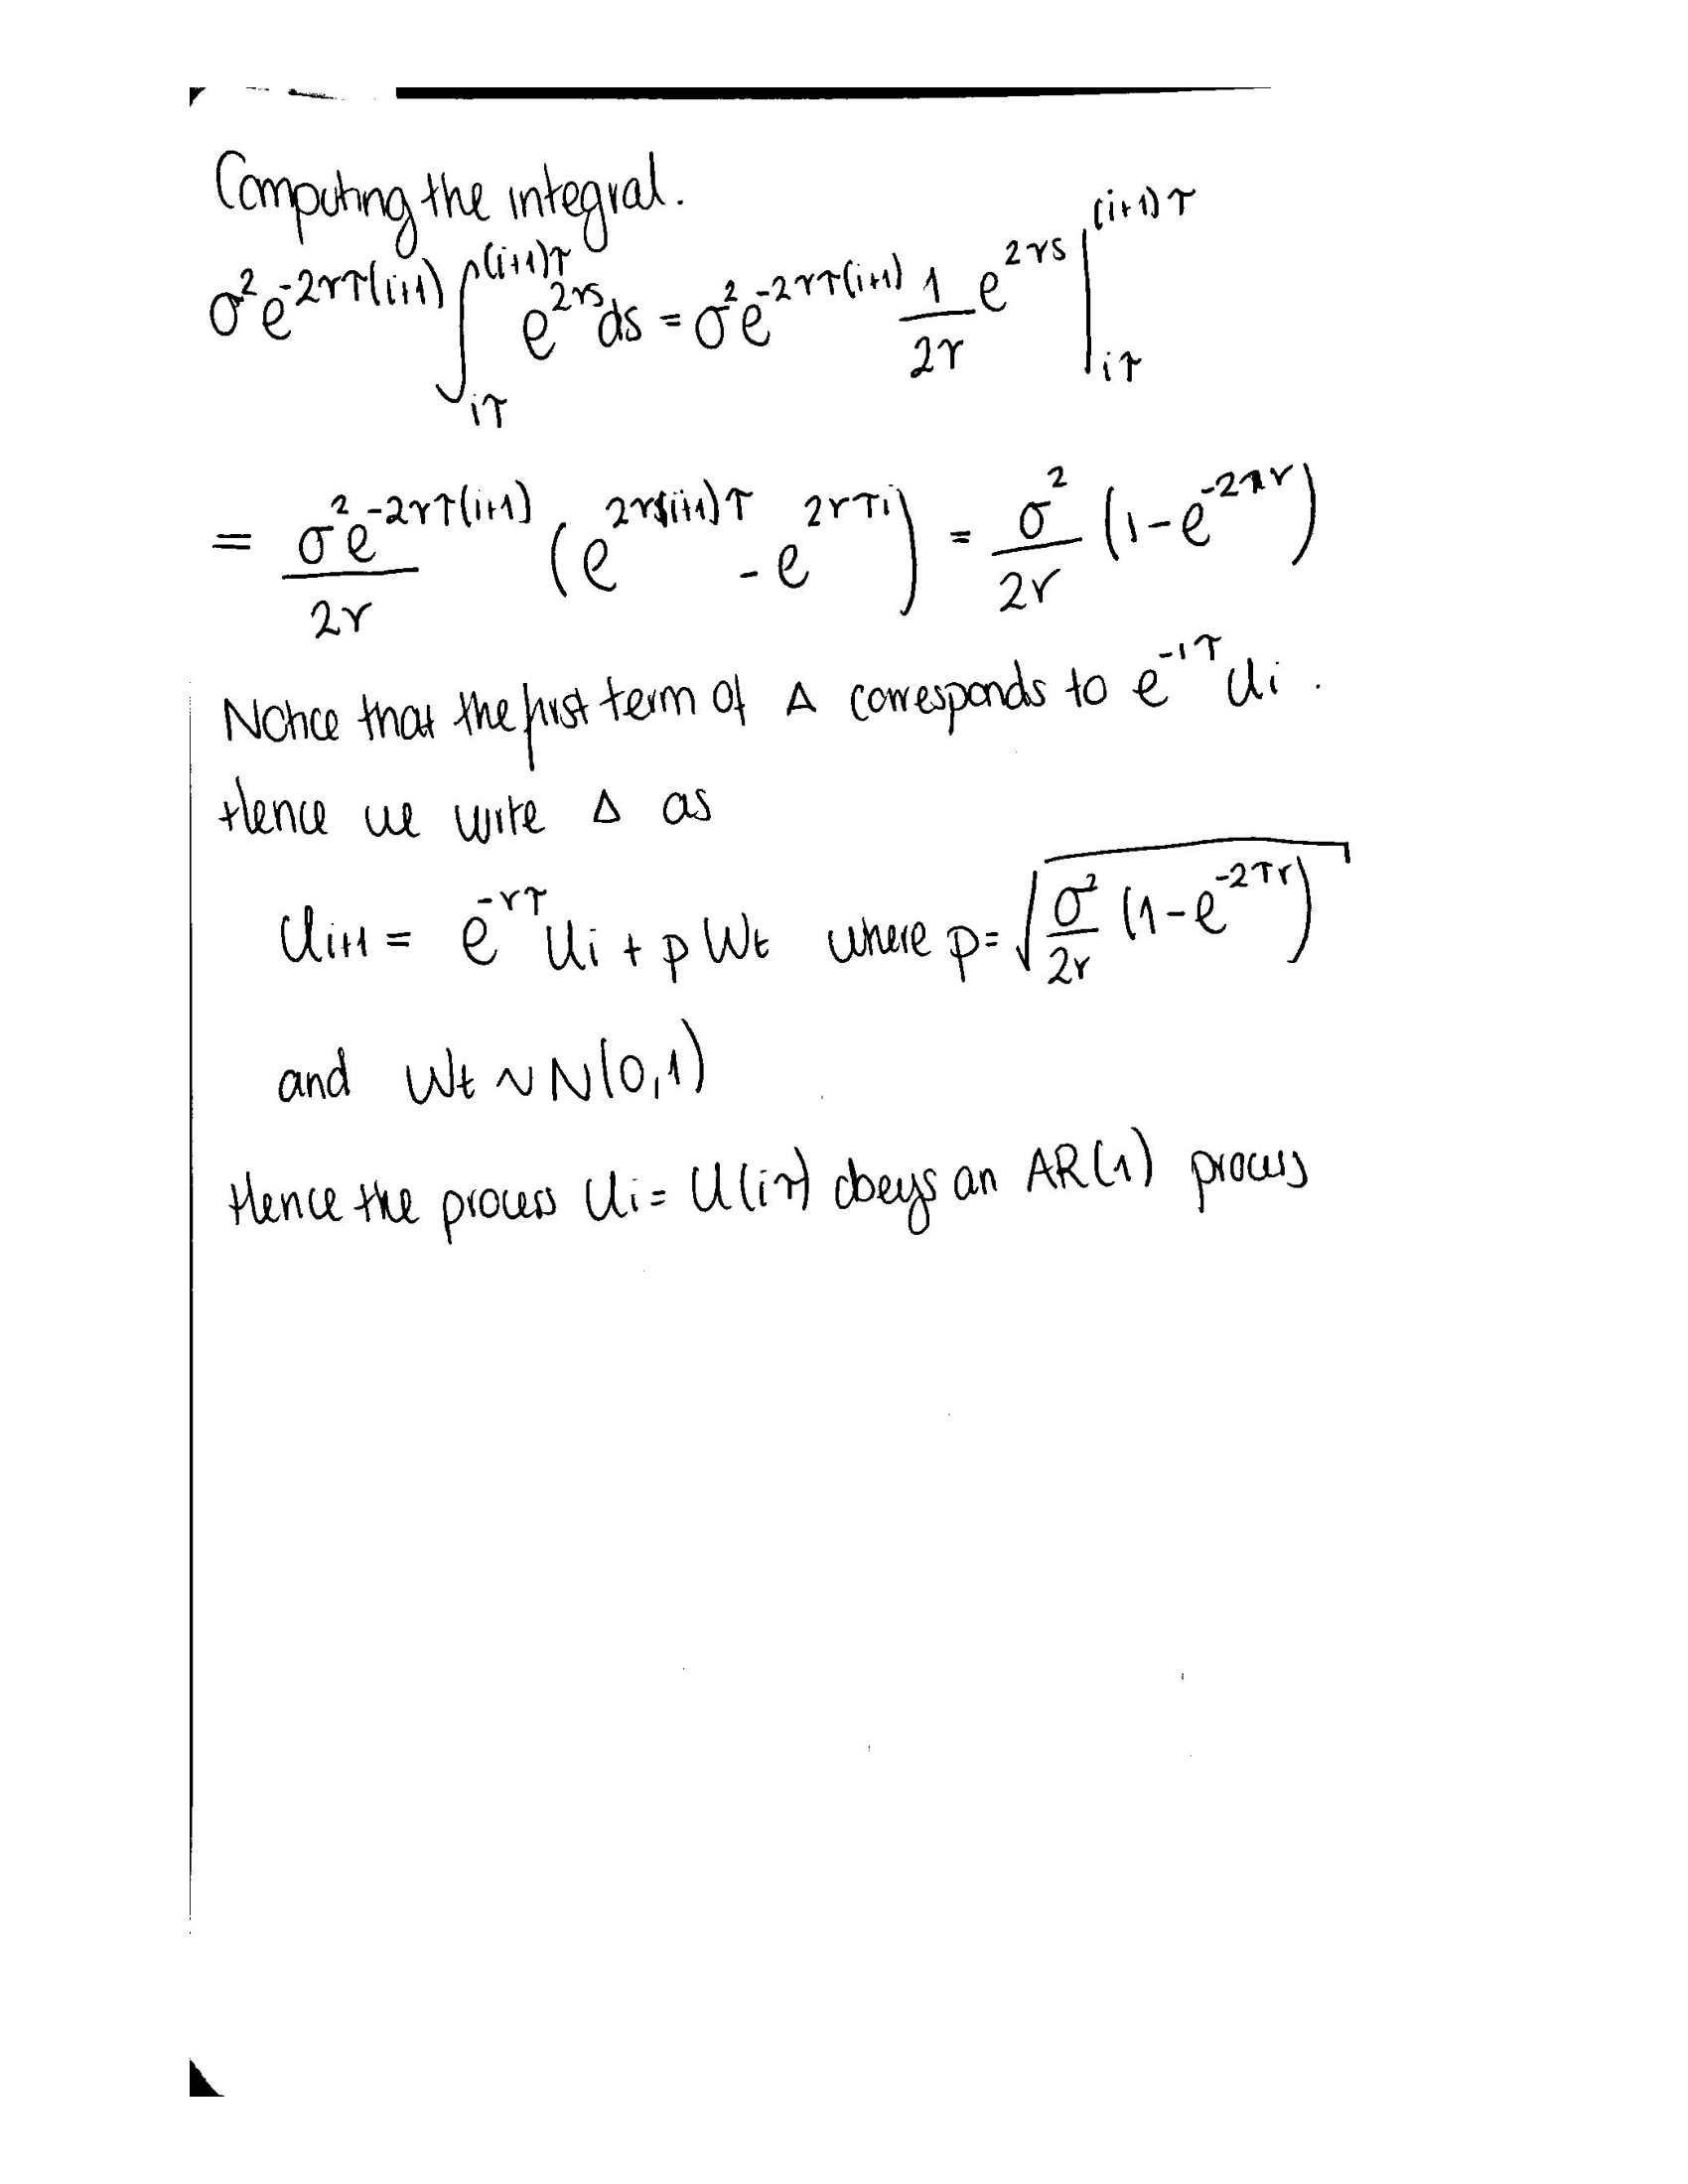 Computing the integral.
σ² e^{-2rτ(i+1)} ∫_{iτ}^{(i+1)τ} e^{2rs} ds = σ² e^{-2rτ(i+1)} 1/2r e^{2rs} |_{iτ}^{(i+1)τ}
= σ² e^{-2rτ(i+1)}/2r (e^{2r(i+1)τ} - e^{2rτi}) = σ²/2r (1-e^{-2τr})
Notice that the first term of Δ corresponds to e^{-rτ} Ui.
Hence we write Δ as
Ui+1 = e^{-rτ} Ui + p Wt where p = √(σ²/2r (1-e^{-2τr}))
and Wt ~ N(0,1)
Hence the process Ui = U(iτ) obeys an AR(1) process